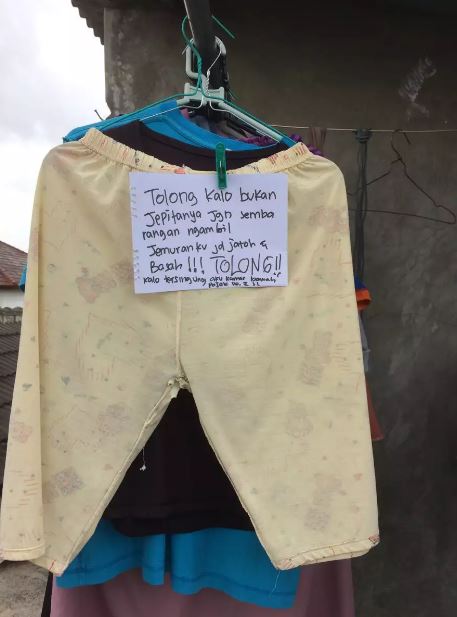 Tolong kalo bukan
Jepitanya Jgn semba
rangan ngambil
Jemuranku jd jatoh &
Basah !!! TOLONG!!
kalo tersinggung aku kamar bawah
Pojok no. 2 !!